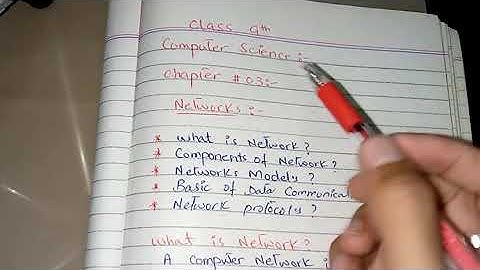 Class 9th
Computer Science :-
Chapter # 03:-
Networks :-
* What is Network?
* Components of Network?
* Networks Models?
* Basic of Data Communica
* Network protocols?
What is Network?
A Computer Network i